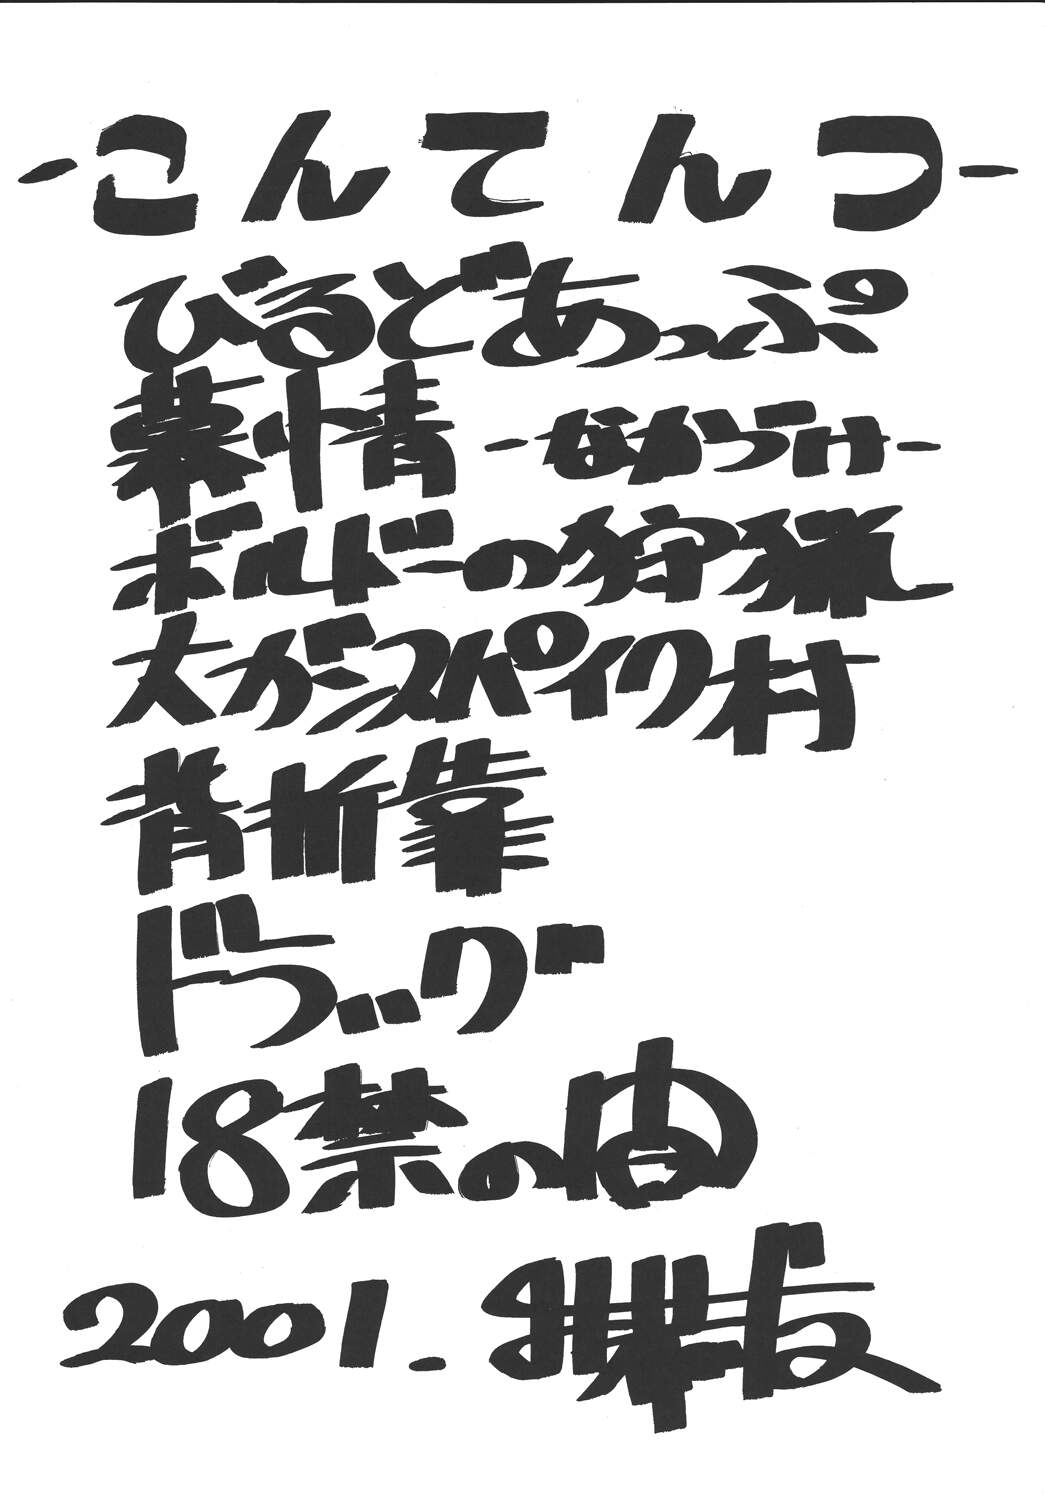 -こんてんつ-
びるどあっぷ
慕情 -なかづけ-
ボルドーの狩猟
大ガシスパイク村
背折靠
ドラッグ
18禁の由
2001.